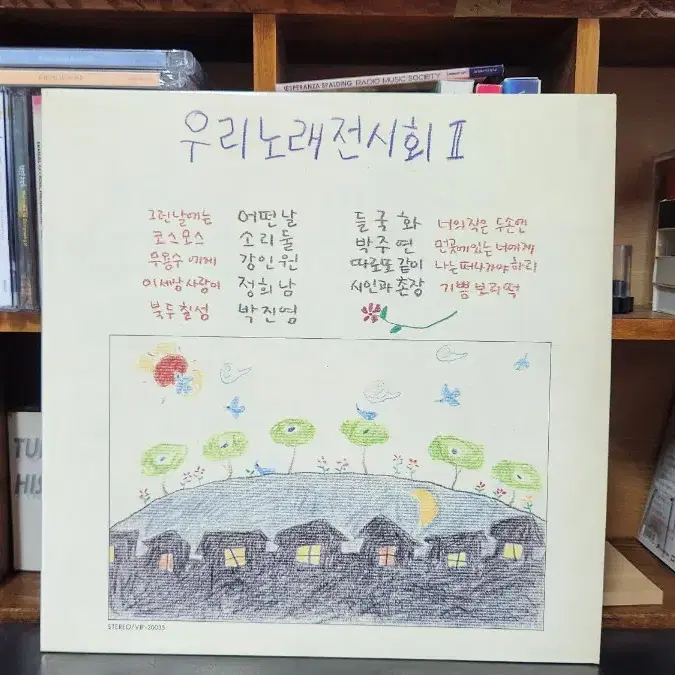 ESPERANZA SPALDING RADIO MUSIC SOCIETY
우리노래전시회 II
그런날에는 어떤날
코스모스 소리둘
무용수에게 강인원
이세상사랑이 정희남
북두칠성 박진영
들국화 너의작은두손엔
박주연 먼곳에있는너에게
따로또같이 나는떠나가야하리
시인과촌장 기쁨보리떡
STEREO/VIP-20035